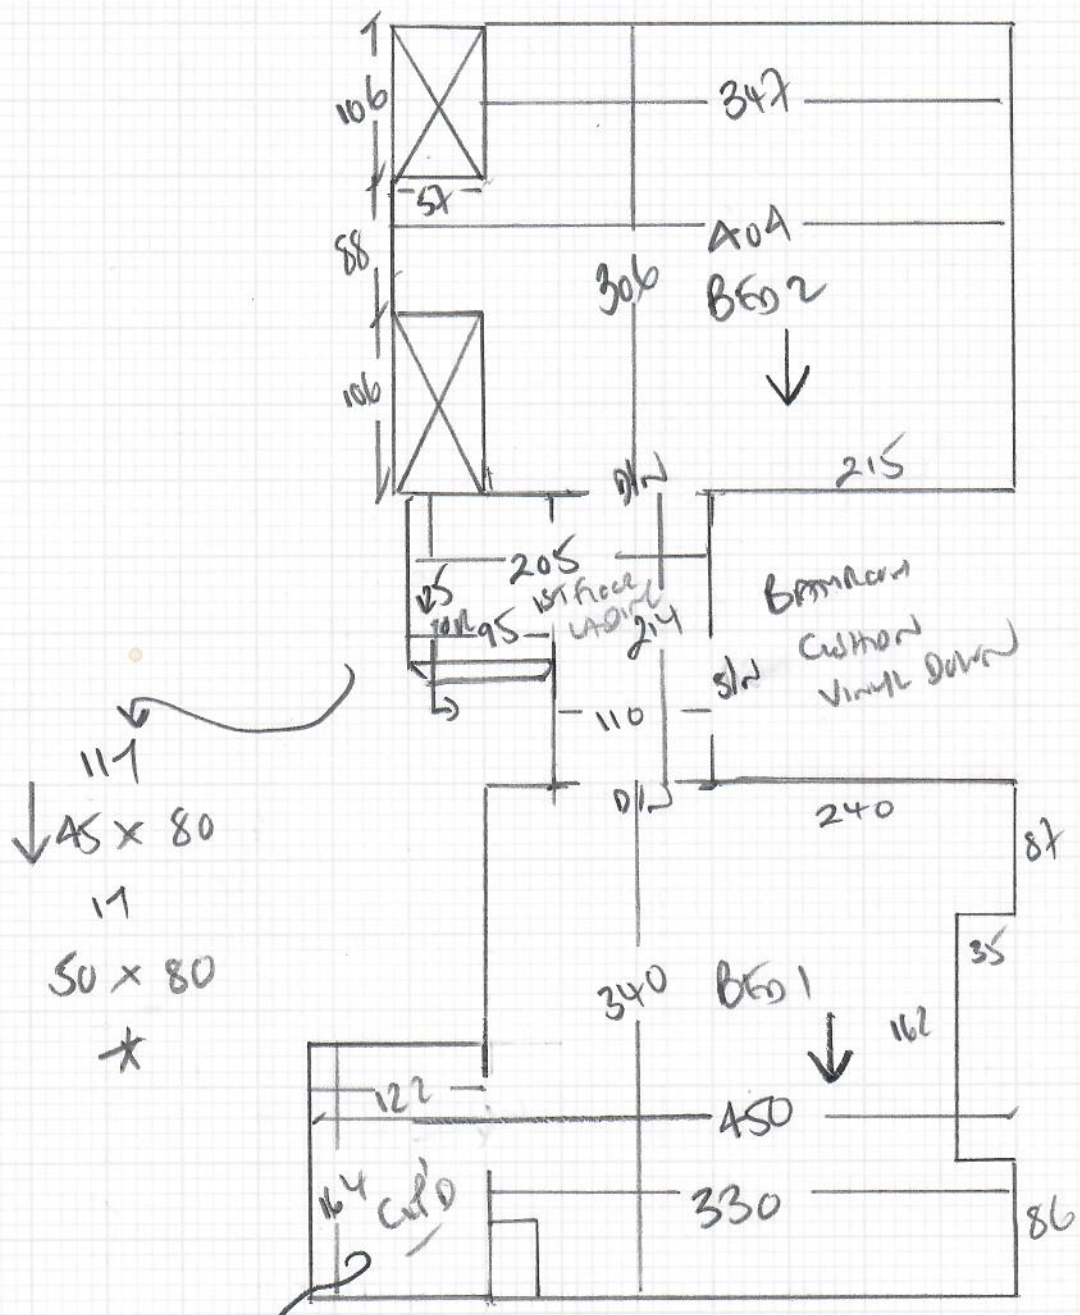 106
347
57
88
404
306
BED 2
106
D/N
215
205
1ST FLOOR
LADING
95
214
BATHROOM
CUSHION
VINYL DOWN
S/N
110
D/N
240
87
117
45 x 80
17
50 x 80
*
35
340
BED 1
162
122
450
164
CUP'D
330
86